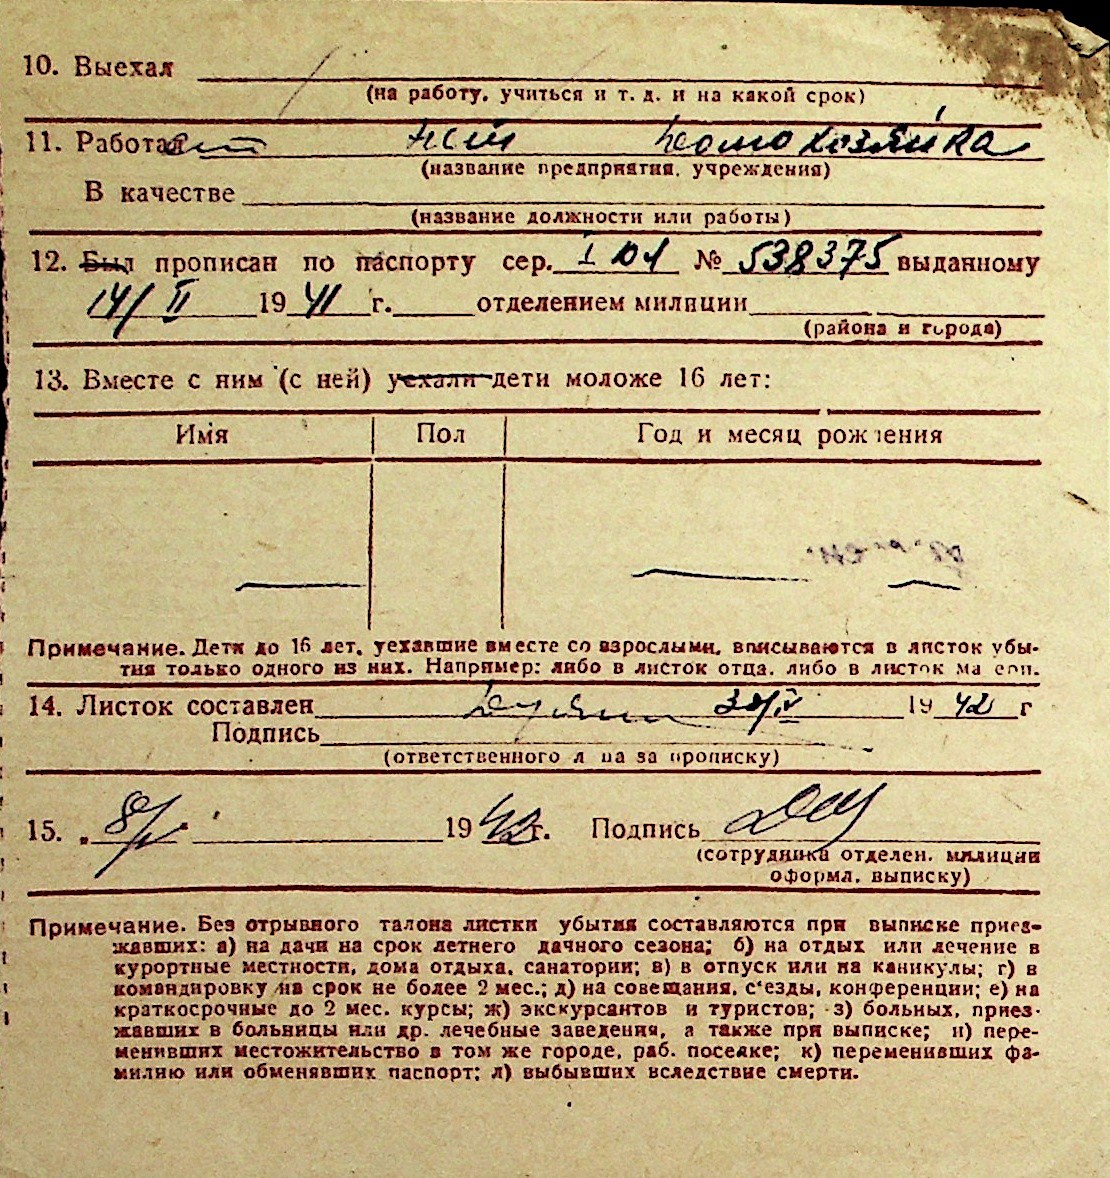 10. Выехал
(на работу, учиться и т. д. и на какой срок)
11. Работа нет Домохозяйка
(название предприятия, учреждения)
В качестве
(название должности или работы)
12. Был прописан по паспорту сер. № 538375 выданному
14/II 1941 г. отделением милиции
(района и города)
13. Вместе с ним (с ней) уехали дети моложе 16 лет:
Имя Пол Год и месяц рождения
Примечание. Дети до 16 лет, уехавшие вместе со взрослыми, вписываются в листок убы-
тия только одного из них. Например: либо в листок отца, либо в листок матери.
14. Листок составлен 1942 г
Подпись
(ответственного лица за прописку)
15. 8/V 1942 г. Подпись
(сотрудника отделен. милиции
оформл. выписку)
Примечание. Без отрывного талона листки убытия составляются при выписке приез-
жавших: а) на дачи на срок летнего дачного сезона; б) на отдых или лечение в
курортные местности, дома отдыха, санатории; в) в отпуск или на каникулы; г) в
командировку на срок не более 2 мес.; д) на совещания, с'езды, конференции; е) на
краткосрочные до 2 мес. курсы; ж) экскурсантов и туристов; з) больных, приез-
жавших в больницы или др. лечебные заведения, а также при выписке; и) пере-
менивших местожительство в том же городе, раб. поселке; к) переменивших фа-
милию или обменявших паспорт; л) выбывших вследствие смерти.